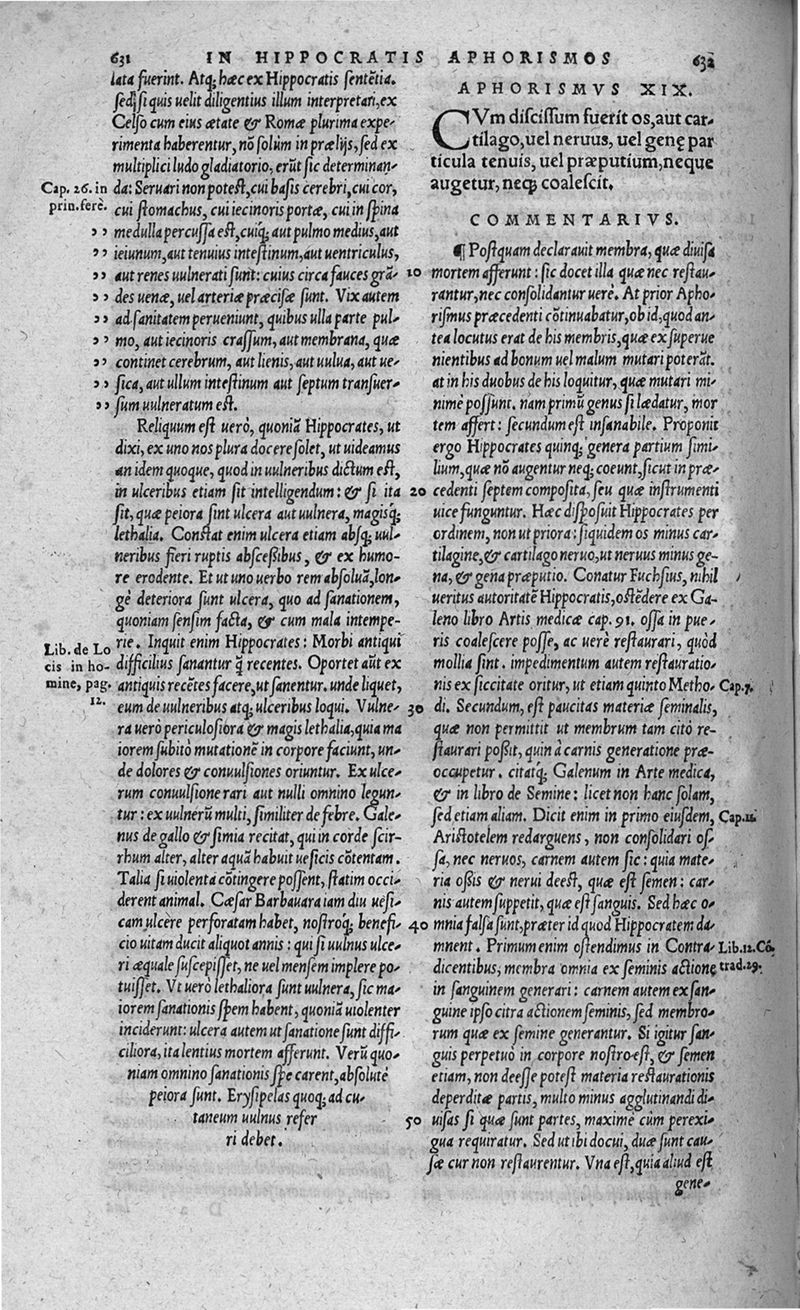 631 IN HIPPOCRATIS APHORISMOS 632
lata fuerint. Atq; hæc ex Hippocratis sentẽtia.
sed si quis uelit diligentius illum interpretari, ex
Celso cum eius ætate & Romæ plurima expe-
rimenta haberentur, nõ solùm in prælijs, sed ex
multiplici ludo gladiatorio, erũt sic determinan-
Cap. 26. in
prin. ferè.
da: Seruari non potest, cui basis cerebri, cui cor,
cui stomachus, cui iecinoris portæ, cui in spina
,, medulla percussa est, cuiq; aut pulmo medius, aut
,, ieiunum, aut tenuius intestinum, aut uentriculus,
,, aut renes uulnerati sunt: cuius circa fauces grã-
,, des uenæ, uel arteriæ præcisæ sunt. Vix autem
,, ad sanitatem perueniunt, quibus ulla parte pul-
,, mo, aut iecinoris crassum, aut membrana, quæ
,, continet cerebrum, aut lienis, aut uulua, aut ue-
,, sica, aut ullum intestinum aut septum transuer-
,, sum uulneratum est.
Reliquum est uerò, quoniã Hippocrates, ut
dixi, ex uno nos plura docere solet, ut uideamus
an idem quoque, quod in uulneribus dictum est,
in ulceribus etiam sit intelligendum: & si ita
sit, quæ peiora sint ulcera aut uulnera, magisq;
lethalia. Constat enim ulcera etiam absq; uul-
neribus fieri ruptis abscessibus, & ex humo-
re erodente. Et ut uno uerbo rem absoluã, lon-
gè deteriora sunt ulcera, quo ad sanationem,
quoniam sensim facta, & cum mala intempe-
Lib. de Lo
cis in ho-
mine, pag.
12.
rie. Inquit enim Hippocrates: Morbi antiqui
difficilius sanantur q̃ recentes. Oportet aũt ex
antiquis recẽtes facere, ut sanentur. unde liquet,
eum de uulneribus atq; ulceribus loqui. Vulne-
ra uerò periculosiora & magis lethalia, quia ma
iorem subitò mutationẽ in corpore faciunt, un-
de dolores & conuulsiones oriuntur. Ex ulce-
rum conuulsione rari aut nulli omnino legun-
tur: ex uulnerũ multi, similiter de febre. Gale-
nus de gallo & simia recitat, qui in corde scir-
rhum alter, alter aquã habuit uesicis cõtentam.
Talia si uiolenta cõtingere possent, statim occi-
derent animal. Cæsar Barbauara iam diu uesi-
cam ulcere perforatam habet, nostroq; benefi-
cio uitam ducit aliquot annis: qui si uulnus ulce-
ri æquale suscepisset, ne uel mensem implere po-
tuisset. Vt uerò lethaliora sunt uulnera, sic ma-
iorem sanationis spem habent, quoniã uiolenter
inciderunt: ulcera autem ut sanatione sunt diffi-
ciliora, ita lentius mortem afferunt. Verũ quo-
niam omnino sanationis spe carent, absolutè
peiora sunt. Erysipelas quoq; ad cu-
taneum uulnus refer
ri debet.
APHORISMVS XIX.
CVm discissum fuerit os, aut car-
tilago, uel neruus, uel genę par
ticula tenuis, uel præputium, neque
augetur, neq; coalescit.
COMMENTARIVS.
¶ Postquam declarauit membra, quæ diuisa
10 mortem afferunt: sic docet illa quæ nec restau-
rantur, nec consolidantur uerè. At prior Apho-
rismus præcedenti cõtinuabatur, ob id, quod an-
tea locutus erat de his membris, quæ ex superue
nientibus ad bonum uel malum mutari poterãt.
at in his duobus de his loquitur, quæ mutari mi-
nimè possunt. nam primũ genus si lædatur, mor
tem affert: secundum est insanabile. Proponit
ergo Hippocrates quinq; genera partium simi-
lium, quæ nõ augentur neq; coeunt, sicut in præ-
20 cedenti septem composita, seu quæ instrumenti
uice funguntur. Hæc disposuit Hippocrates per
ordinem, non ut priora: siquidem os minus car-
tilagine, & cartilago neruo, ut neruus minus ge-
na, & gena præputio. Conatur Fuchsius, nihil
ueritus autoritatẽ Hippocratis, ostẽdere ex Ga-
leno libro Artis medicæ cap. 91. ossa in pue-
ris coalescere posse, ac uerè restaurari, quòd
mollia sint. impedimentum autem restauratio-
nis ex siccitate oritur, ut etiam quinto Metho- Cap. 7.
30 di. Secundum, est paucitas materiæ seminalis,
quæ non permittit ut membrum tam citò re-
staurari possit, quin à carnis generatione præ-
occupetur. citatq; Galenum in Arte medica,
& in libro de Semine: licet non hanc solam,
sed etiam aliam. Dicit enim in primo eiusdem, Cap. 11.
Aristotelem redarguens, non consolidari os-
sa, nec neruos, carnem autem sic: quia mate-
ria ossis & nerui deest, quæ est semen: car-
nis autem suppetit, quæ est sanguis. Sed hæc o-
40 mnia falsa sunt, præter id quod Hippocratem da-
mnent. Primum enim ostendimus in Contra- Lib. 12. Cõ.
dicentibus, membra omnia ex seminis actione trad. 29.
in sanguinem generari: carnem autem ex san-
guine ipso citra actionem seminis, sed membro-
rum quæ ex semine generantur. Si igitur san-
guis perpetuò in corpore nostro est, & semen
etiam, non deesse potest materia restaurationis
deperditæ partis, multo minus agglutinandi di-
50 uisas si quæ sunt partes, maximè cùm perexi-
gua requiratur. Sed ut ibi docui, duæ sunt cau-
sæ cur non restaurentur. Vna est, quia aliud est
gene-